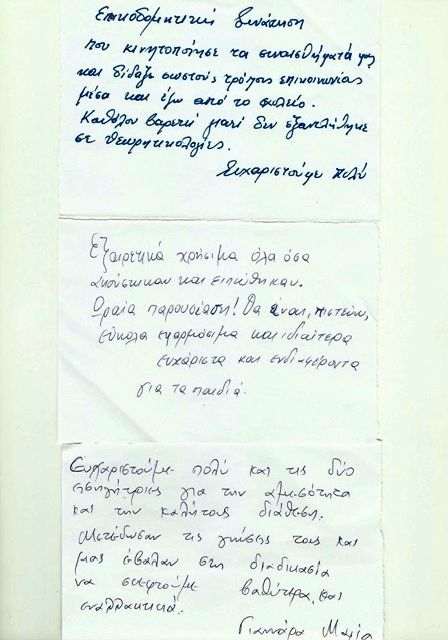 Εποικοδομητική συνάντηση
που κινητοποίησε τα συναισθήματά μας
και δίδαξε σωστούς τρόπους επικοινωνίας
μέσα και έξω από το σχολείο.
Καθόλου βαρετή γιατί δεν εξαντλήθηκε
σε θεωρητικολογίες.
Ευχαριστούμε πολύ
Εξαιρετικά χρήσιμα όλα όσα
ακούστηκαν και ειπώθηκαν.
Ωραία παρουσίαση! Θα είναι, πιστεύω,
εύκολα εφαρμόσιμα και ιδιαίτερα
ευχάριστα και ενδιαφέροντα
για τα παιδιά.
Ευχαριστούμε πολύ και τις δύο
εισηγήτριες για την αμεσότητα
και την καλή τους διάθεση.
Μετέδωσαν τις γνώσεις τους και
μας έβαλαν στη διαδικασία
να σκεφτούμε βαθύτερα και
εναλλακτικά.